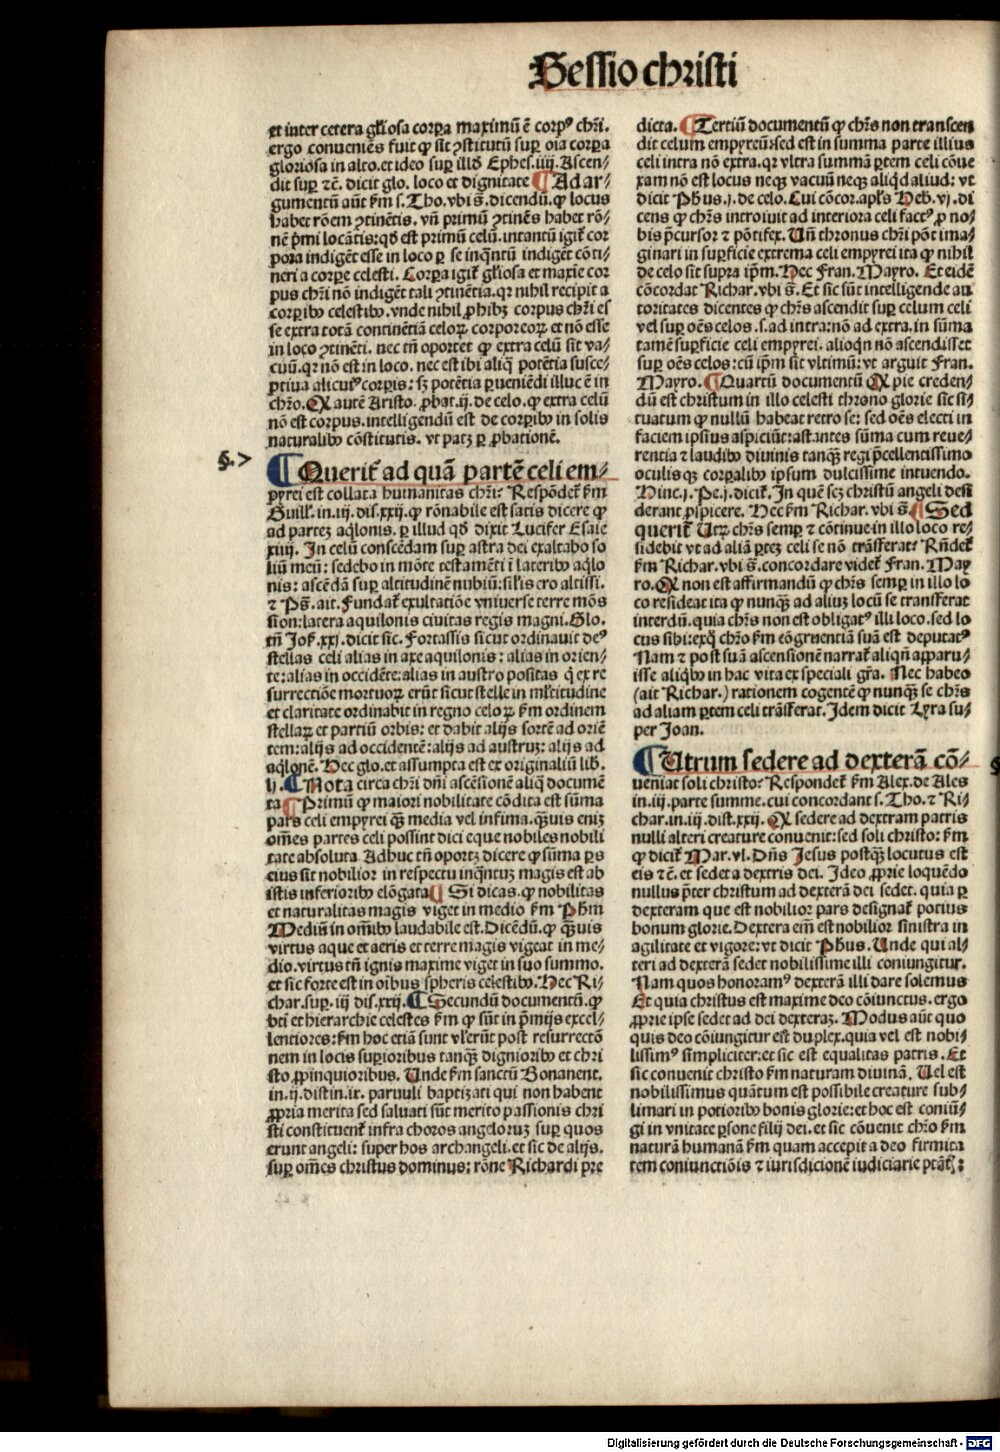 Sessio christi
et inter cetera gl̄iosa corꝑa maximū ē corpꝰ chr̄i.
ergo conueniēs fuit ꝙ sit ꝯstitutū suꝑ oīa corꝑa
gloriosa in alto. et ideo suꝑ illḋ Ephes. iiij. Ascen⸗
dit suꝑ ꝛc̄. dicit glo. loco et dignitate ¶ Ad ar⸗
gumentū aūt ẜm s. Tho. vbi s̄. dicendū. ꝙ locus
habet rōem ꝯtinētis. vn̄ primū ꝯtinēs habet rō⸗
nē p̄mi locātis: qḋ est primū celū. intantū igiť cor
pora indigēt esse in loco ꝑ se inqͣntū indigēt cōti⸗
neri a corꝑe celesti. Corꝑa igiť gl̄iosa et maxīe cor
pus chr̄i nō indigēt tali ꝯtinētia. qꝛ nihil recipit a
corꝑibꝰ celestibꝰ. vnde nihil ꝓhibꝫ corpus chr̄i es
se extra totā continētiā celoꝝ corporeoꝝ et nō esse
in loco ꝯtinēti. nec tn̄ oportet ꝙ extra celū sit va⸗
cuū. qꝛ nō est in loco. nec est ibi aliq̄ potētia susce⸗
ptiua alicuiꝰ corꝑis: sꝫ potētia ꝑueniēdi illuc ē in
chr̄o. Qꝫ autē Aristo. ꝓbat. ij. de celo. ꝙ extra celū
nō est corpus. intelligendū est de corꝑibꝰ in solis
naturalibꝰ cōstitutis. vt patꝫ ꝑ ꝓbationē.
§. >
¶ Queriť ad quā partē celi em⸗
pyrei est collata humanitas chr̄i? Respōdeť ẜm
Guilł. in. iij. dis. xxij. ꝙ rōnabile est satis dicere ꝙ
ad partez aq̄lonis. ꝑ illud qḋ dixit Lucifer Esaie
xiiij. In celū conscēdam suꝑ astra dei exaltabo so
liū meū: sedebo in mōte testamēti ī lateribꝰ aq̄lo
nis: ascēdā suꝑ altitudinē nubiū: sil̄is ero altissi.
ꝛ Pṡ. ait. Fundať exultatiōe vniuerse terre mōs
sion: latera aquilonis ciuitas regis magni. Glo.
tn̄ Joƥ. xxj. dicit sic. Fortassis sicut ordinauit deꝰ
stellas celi alias in axe aquilonis: alias in orien⸗
te: alias in occidēte: alias in austro positas q̇ ex re
surrectiōe mortuoꝝ erūt sicut stelle in ml̄titudine
et claritate ordinabit in regno celoꝝ ẜm ordinem
stellaꝝ et partiū orbis: et dabit alijs sortē ad oriē
tem: alijs ad occidentē: alijs ad austruꝫ: alijs ad
aq̄lonē. Hec glo. et assumpta est ex originaliū lib.
lj. ¶ Nota circa chr̄i dn̄i ascēsionē aliq̄ documē
ta ¶ Primū ꝙ maiori nobilitate cōdita est sūma
pars celi empyrei qͣꝫ media vel infima. qͣꝫuis eniꝫ
om̄es partes celi possint dici eque nobiles nobili
tate absoluta. Adhuc tn̄ oportꝫ dicere ꝙ sūma ꝑs
eius sit nobilior in respectu inqͣntuꝫ magis est ab
istis inferioribꝰ elōgata ¶ Si dicas. ꝙ nobilitas
et naturalitas magis viget in medio ẜm Pḣm
Mediū in om̄ibꝰ laudabile est. Dicēdū. ꝙ qͣꝫuis
virtus aque et aeris et terre magis vigeat in me⸗
dio. virtus tn̄ ignis maxime viget in suo summo.
et sic forte est in oībus spheris celestibꝰ. Hec Ri⸗
char. suꝑ. iij dis. xxij. ¶ Secundū documentū. ꝙ
vti et hierarchie celestes ẜm ꝙ sūt in p̄mijs excel⸗
lentiores: ẜm hoc etiā sunt vl̓erūt post resurrectō
nem in locis suꝑioribus tanqͣꝫ dignioribꝰ et chri
sto ꝓpinquioribus. Unde ẜm sanctū Bonauent.
in. ij. distin. ix. paruuli baptizati qui non habent
ꝓpria merita sed saluati sūt merito passionis chri
sti constituenť infra choros angeloruꝫ suꝑ quos
erunt angeli: super hos archangeli. et sic de alijs.
suꝑ om̄es christus dominus: rōne Richardi pre
dicta. ¶ Tertiū documentū ꝙ chr̄s non transcen
dit celum empyreū: sed est in summa parte illius
celi intra nō extra. qꝛ vltra summā ꝑtem celi cōue
xam nō est locus neqꝫ vacuū neqꝫ aliqḋ aliud: vt
dicit Pḣus. j. de celo. Cui cōcor. apl̄s Heb. vj. di
cens ꝙ chr̄s introiuit ad interiora celi factꝰ ꝓ no⸗
bis p̄cursor ꝛ pōtifex. Un̄ thronus chr̄i pōt ima⸗
ginari in suꝑficie extrema celi empyrei ita ꝙ nihil
de celo sit supra ip̄m. Hec Fran. Mayro. Et eidē
cōcordat Richar. vbi s̄. Et sic sūt intelligende au
toritates dicentes ꝙ chr̄s ascendit suꝑ celum celi
vel suꝑ oēs celos. s. ad intra: nō ad extra. in sūma
tamē suꝑficie celi empyrei. alioqn̄ nō ascendisset
suꝑ oēs celos: cū ip̄m sit vltimū: vt arguit Fran.
Mayro. ¶ Quartū documentū Qꝫ pie creden⸗
dū est christum in illo celesti throno glorie sic si⸗
tuatum ꝙ nullū habeat retro se: sed oēs electi in
faciem ipsius aspiciūt: astantes sūma cum reue⸗
rentia ꝛ laudibꝰ diuinis tanqͣꝫ regi p̄cellentissimo
oculisqꝫ corꝑalibꝰ ipsum dulcissime intuendo.
Hinc. j. Pe. j. diciť. In quē scꝫ christū angeli desi
derant ꝓspicere. Hec ẜm Richar. vbi s̄. ¶ Sed
queriť Utꝝ chr̄s semꝑ ꝛ cōtinue in illo loco re⸗
sidebit vt ad aliā ꝑteꝫ celi se nō trāsferat? Rn̄deť
ẜm Richar. vbi s̄. concordare videť Fran. May
ro. Qꝫ non est affirmandū ꝙ chr̄s semꝑ in illo lo
co resideat ita ꝙ nunqͣꝫ ad aliuꝫ locū se transferat
interdū. quia chr̄s non est obligatꝰ illi loco. sed lo
cus sibi: exq̇ chr̄o ẜm cōgruentiā suā est deputatꝰ
Nam ꝛ post suā ascensionē narrať aliqn̄ apparu⸗
isse aliqibꝰ in hac vita ex speciali gr̄a. Nec habeo
(ait Richar.) rationem cogentē ꝙ nunqͣꝫ se chr̄s
ad aliam ꝑtem celi trāsferat. Idem dicit Lyra su⸗
per Joan.
¶ Utrum sedere ad dexterā cō⸗
ueniat soli christo? Respondeť ẜm Alex. de Ales
in. iij. parte summe. cui concordant s. Tho. ꝛ Ri⸗
char. in. iij. dist. xxij. Qꝫ sedere ad dextram patris
nulli alteri creature conuenit: sed soli christo: ẜm
ꝙ diciť Mar. vl. Dn̄s Jesus postqͣꝫ locutus est
eis ꝛc̄. et sedet a dextris dei. Ideo ꝓprie loquēdo
nullus p̄ter christum ad dexterā dei sedet. quia ꝑ
dexteram que est nobilior pars designať potius
bonum glorie. Dextera em̄ est nobilior sinistra in
agilitate et vigore: vt dicit Pḣus. Unde qui al⸗
teri ad dexterā sedet nobilissime illi coniungitur.
Nam quos honoramꝰ dexterā illi dare solemus
Et quia christus est maxime deo cōiunctus. ergo
ꝓprie ipse sedet ad dei dexteraꝫ. Modus aūt quo
quis deo cōiungitur est duplex. quia vel est nobi⸗
lissimꝰ simpliciter: et sic est equalitas patris. Et
sic conuenit christo ẜm naturam diuinā. Uel est
nobilissimus quātum est possibile creature sub⸗
limari in potioribꝰ bonis glorie: et hoc est coniū⸗
gi in vnitate ꝑsone filij dei. et sic cōuenit chr̄o ẜm
naturā humanā ẜm quam accepit a deo firmita
tem coniunctiōis ꝛ iurisdicionē iudiciarie ptāt̄ꝭ:
Digitalisierung gefördert durch die Deutsche Forschungsgemeinschaft - DFG